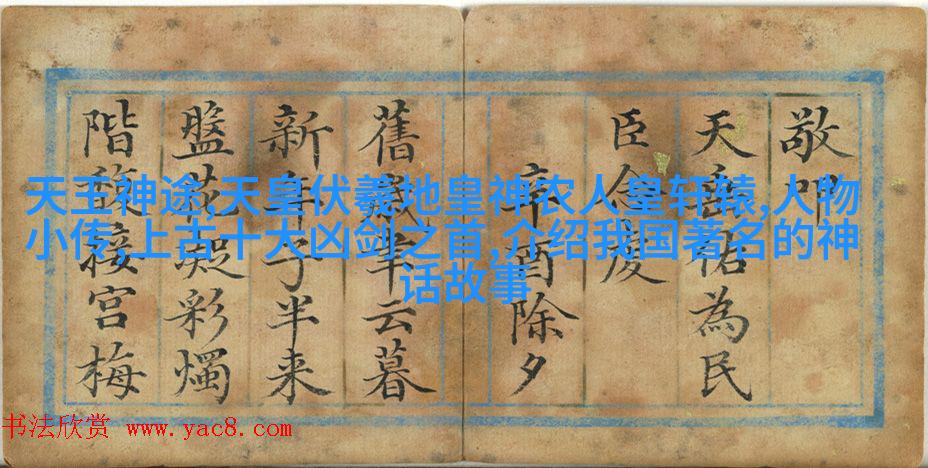 天王神途,天皇伏羲地皇神农人皇轩辕,人物
小传,上古十大凶剑之首,介绍我国著名的神
话故事
敬叩
天祐為民
臣慶
辛酉除夕
舊歲年云暮
新年子半来
盤花凝彩燭
階馥接宮梅
书法欣赏 www.yac8.com